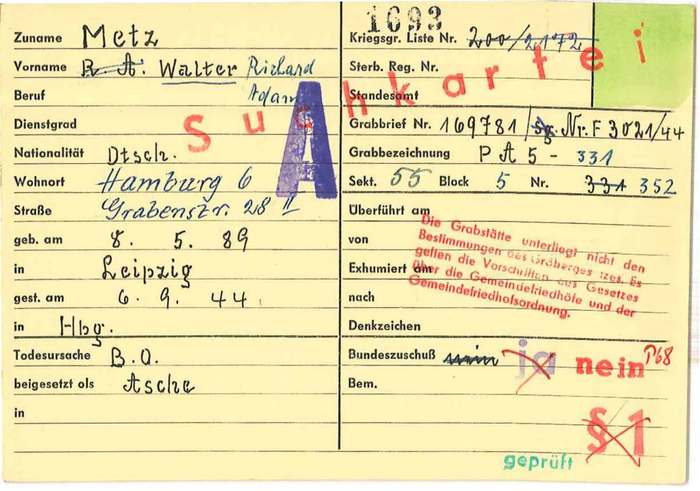 1693
Suchkartei
A
Zuname Metz
Vorname R. A. Walter Richard
Adam
Beruf
Dienstgrad
Nationalität Dtsch.
Wohnort Hamburg 6
Straße Grabenstr. 28 II
geb. am 8. 5. 89
in Leipzig
gest. am 6. 9. 44.
in Hbg.
Todesursache B.O.
beigesetzt als Asche
in
Kriegsgr. Liste Nr. 200/2172
Sterb. Reg. Nr.
Standesamt
Grabbrief Nr. 169781 / Nr. F 3021/44
Grabbezeichnung P A 5 - 331
Sekt. 55 Block 5 Nr. 331 352
Überführt am
von
Exhumiert am
nach
Denkzeichen
Die Grabstätte unterliegt nicht den
Bestimmungen des Gräbergesetzes. Es
gelten die Vorschriften des Gesetzes
über die Gemeindefriedhöfe und der
Gemeindefriedhofsordnung.
Bundeszuschuß nein ja nein P68
Bem.
§ 1
geprüft